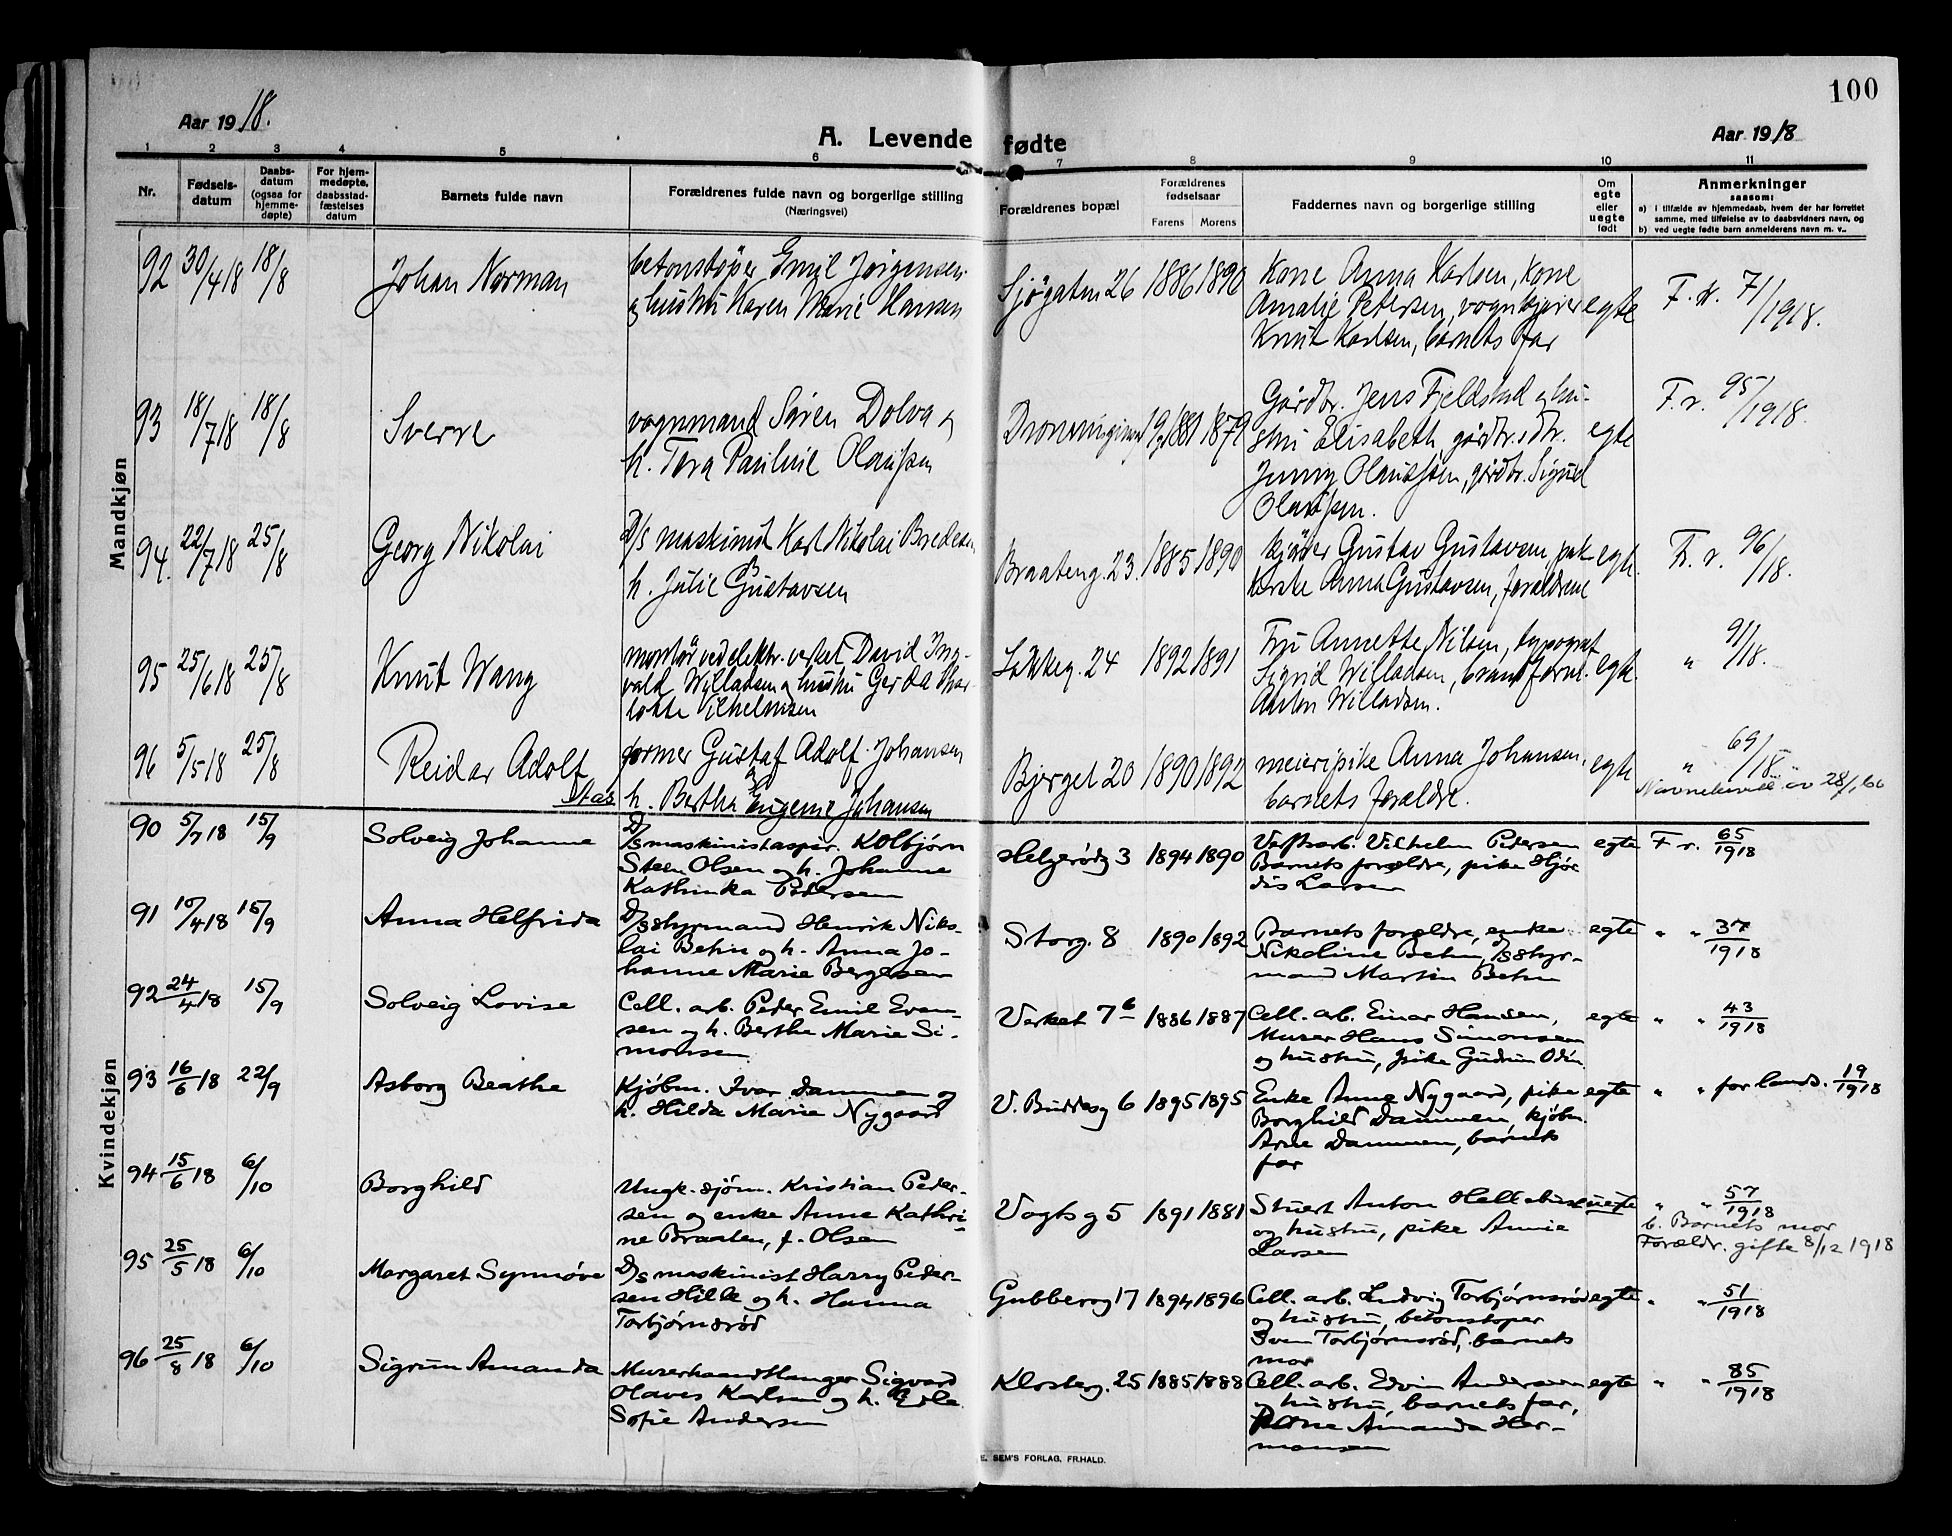 100
Aar 1918.
A. Levende fødte
Aar 1918
1 2 3 4 5 6 7 8 9 10 11
Nr.
Fødsels-
datum
Daabs-
datum
(ogsaa for
hjemme-
døpte)
For hjem-
medøpte,
daabsstad-
fæstelses
datum
Barnets fulde navn
Forældrenes fulde navn og borgerlige stilling
(Næringsvei)
Forældrenes bopæl
Forældrenes
fødselsaar
Farens Morens
Faddernes navn og borgerlige stilling
Om
egte
eller
uegte
født
Anmerkninger
saasom:
a) i tilfælde av hjemmedaab, hvem der har forrettet
samme, med tilføielse av to daabsvidners navn, og
b) ved uegte fødte barn anmelderens navn m. v..
Mandkjøn
92 30/4 18 18/8 Johan Norman
betonstøper Emil Jørgensen
og hustru Karen Marie Hansen
Sjøgaten 26 1886 1890
Kone Anna Karlsen, Kone
Amalie Petersen, vognkjører
Knut Karlsen, barnets far
egte F. r. 71/1918.
93 18/7 18 18/8 Sverre
vognmand Søren Dolva og
h. Tora Pauline Olaussen
19 1881 1879
Gårdbr. Jens Fjeldstad og hu-
stru Elisabeth, gårdbr.dtr.
Jenny Olaussen, gårdbr. Sigurd
Olaussen.
egte F. r. 95/1918.
94. 22/7 18 25/8 Georg Nikolai
D/s maskinist Karl Nikolai Bredesen
h. Julie Gustavsen
Braateng. 23. 1885 1890
kjører Gustav Gustavsen, pak-
kerske Anna Gustavsen, forældrene
egte. F. r. 96/18.
95 25/6 18 25/8 Knut Wang
montør ved elektr. verket David Ing-
vald Willadsen og hustru Gerda Shar-
lotte Vilhelmsen
Løkkeg. 24 1892 1891
Fru Annette Nilsen, typograf
Sigrid Willadsen, brandform.
Anton Willadsen.
egte. " 91/18.
96 5/5 18 25/8 Reidar Adolf
Stas
former Gustaf Adolf Johansen
h. Bertha Eugenie Johansen
Bjerget 20 1890 1892
meieripike Anna Johansen,
barnets forældre.
egte " 69/18
28/1 66
Kvindekjøn
90 5/7 18 15/9 Solveig Johanne
D/s maskinistaspir. Kolbjørn
Steen Olsen og h. Johanne
Kathinka Pedersen
Helgerødg 3 1894 1890
Verftsarb. Vilhelm Pedersen
Barnets forældre, pike Hjør-
dis Larsen
egte F r. 65/1918
91 15/4 18 15/9 Anna Helfrida
D/s styrmand Henrik Niko-
lai Behn og h. Anna Jo-
hanne Marie Bergesen
Storg. 8 1890 1892
Barnets forældre, enke
Nikoline Behn, D/s styr-
mand Martin Behn
egte " " 37/1918
92 24/4 18 15/9 Solveig Lovise
Cell. arb. Peder Emil Even-
sen og h. Berthe Marie Si-
monsen
Verket 7 b 1886 1887
Cell. arb. Einar Hansen,
Murer Hans Simonsen
og hustru, pike Gudrun Odin
egte " " 43/1918
93 16/6 18 22/9 Asborg Beathe
Kjøbm. Ivar Dammen og
h. Hilda Marie Nygaard
V. Buddesg 6 1895 1895
Enke Anne Nygaard, pike
Borghild Dammen, kjøbm.
Arne Dammen, barnets
far
egte " " for lands. 19/1918
94 15/6 18 6/10 Borghild
Ungk. sjøm. Kristian Peder-
sen og enke Anne Kathri-
ne Braaten, f. Olsen
Vogtsg 5 1891 1881
Stuert Anton
og hustru, pike Annie
Larsen
uegte " " 57/1918
b. Barnets mor
Forældr. gifte 8/12 1918
95 25/5 18 6/10 Margaret Synnøve
D/s maskinist Harry Peder-
sen Hille og h. Hanna
Torbjørnsrød
Gubberog 17 1894 1896
Cell. arb. Ludvig Torbjørnsrød
og hustru, betonstøper
Sven Torbjørnsrød, barnets
mor
egte " " 51/1918
96 25/8 18 6/10 Sigrun Amanda
Murerhaandlanger Sigvard
Olaves Karlsen og h. Edle
Sofie Andersen
Klosterg. 25 1885 1888
Cell. arb. Edvin Andersen
og hustru, barnets far,
Kone Amanda Her-
mansen
egte " " 85/1918
E. SEM'S FORLAG, FR.HALD.